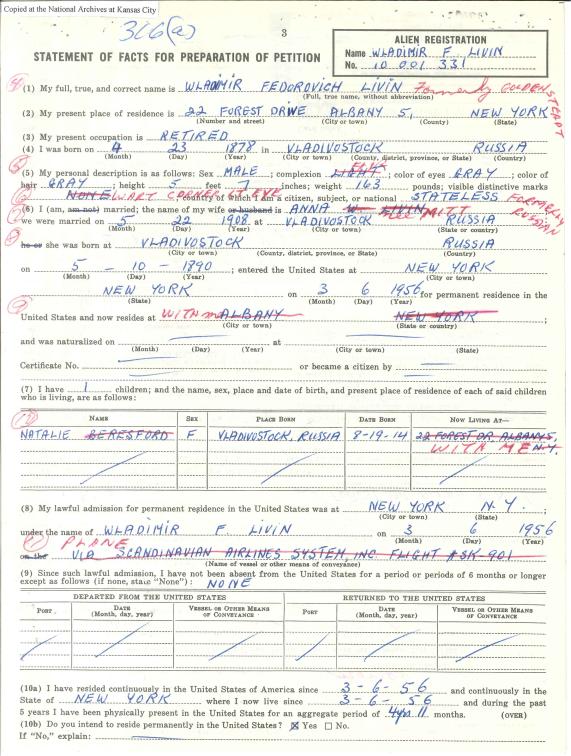 Copied at the National Archives at Kansas City
366(a)
3
STATEMENT OF FACTS FOR PREPARATION OF PETITION
ALIEN REGISTRATION
Name WLADIMIR F LIVIN
No. 10 001 331
(1) My full, true, and correct name is WLADIMIR FEDOROVICH LIVIN Formerly GOLDENSTEADT
(Full, true name, without abbreviation)
(2) My present place of residence is 22 FOREST DRIVE ALBANY 5, NEW YORK
(Number and street) (City or town) (County) (State)
(3) My present occupation is RETIRED
(4) I was born on 4 23 1878 in VLADIVOSTOCK RUSSIA
(Month) (Day) (Year) (City or town) (County, district, province, or State) (Country)
(5) My personal description is as follows: Sex MALE; complexion LIGHT; color of eyes GRAY; color of
hair GRAY; height 5 feet 7 inches; weight 163 pounds; visible distinctive marks
NONE WART CORNER L. EYE country of which I am a citizen, subject, or national STATELESS FORMERLY RUSSIAN
(6) I (am, am not) married; the name of my wife or husband is ANNA W. LIVIN
we were married on 5 22 1908 at VLADIVOSTOCK RUSSIA
(Month) (Day) (Year) (City or town) (State or country)
he or she was born at VLADIVOSTOCK RUSSIA
(City or town) (County, district, province, or State) (Country)
on 5 - 10 - 1890; entered the United States at NEW YORK
(Month) (Day) (Year) (City or town)
NEW YORK on 3 6 1956 for permanent residence in the
(State) (Month) (Day) (Year)
United States and now resides at WITH me ALBANY NEW YORK;
(City or town) (State or country)
and was naturalized on at
(Month) (Day) (Year) (City or town) (State)
Certificate No. or became a citizen by
(7) I have 1 children; and the name, sex, place and date of birth, and present place of residence of each of said children
who is living, are as follows:
NAME SEX PLACE BORN DATE BORN NOW LIVING AT—
NATALIE BERESFORD F VLADIVOSTOCK, RUSSIA 8-19-14 22 FOREST DR. ALBANY 5, N.Y.
WITH ME
(8) My lawful admission for permanent residence in the United States was at NEW YORK N.Y.
(City or town) (State)
under the name of WLADIMIR F. LIVIN on 3 6 1956
(Month) (Day) (Year)
PLANE
on the VIA SCANDINAVIAN AIRLINES SYSTEM INC. FLIGHT #SK-901
(Name of vessel or other means of conveyance)
(9) Since such lawful admission, I have not been absent from the United States for a period or periods of 6 months or longer
except as follows (if none, state "None"): NONE
DEPARTED FROM THE UNITED STATES RETURNED TO THE UNITED STATES
PORT DATE (Month, day, year) VESSEL OR OTHER MEANS OF CONVEYANCE PORT DATE (Month, day, year) VESSEL OR OTHER MEANS OF CONVEYANCE
(10a) I have resided continuously in the United States of America since 3-6-56 and continuously in the
State of NEW YORK where I now live since 3-6-56 and during the past
5 years I have been physically present in the United States for an aggregate period of 4 yrs 11 months. (OVER)
(10b) Do you intend to reside permanently in the United States? ☒ Yes ☐ No.
If "No," explain: